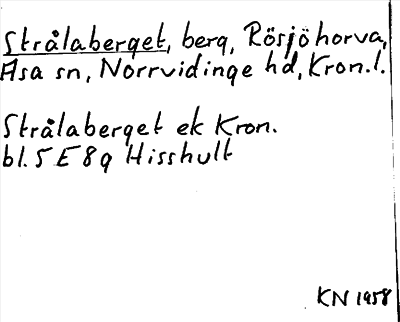 Strålaberget, berg, Rösjöhorva,
Asa sn, Norrvidinge hd, Kron.l.
Strålaberget ek Kron.
bl. 5 E 8 q Hisshult
KN 1958